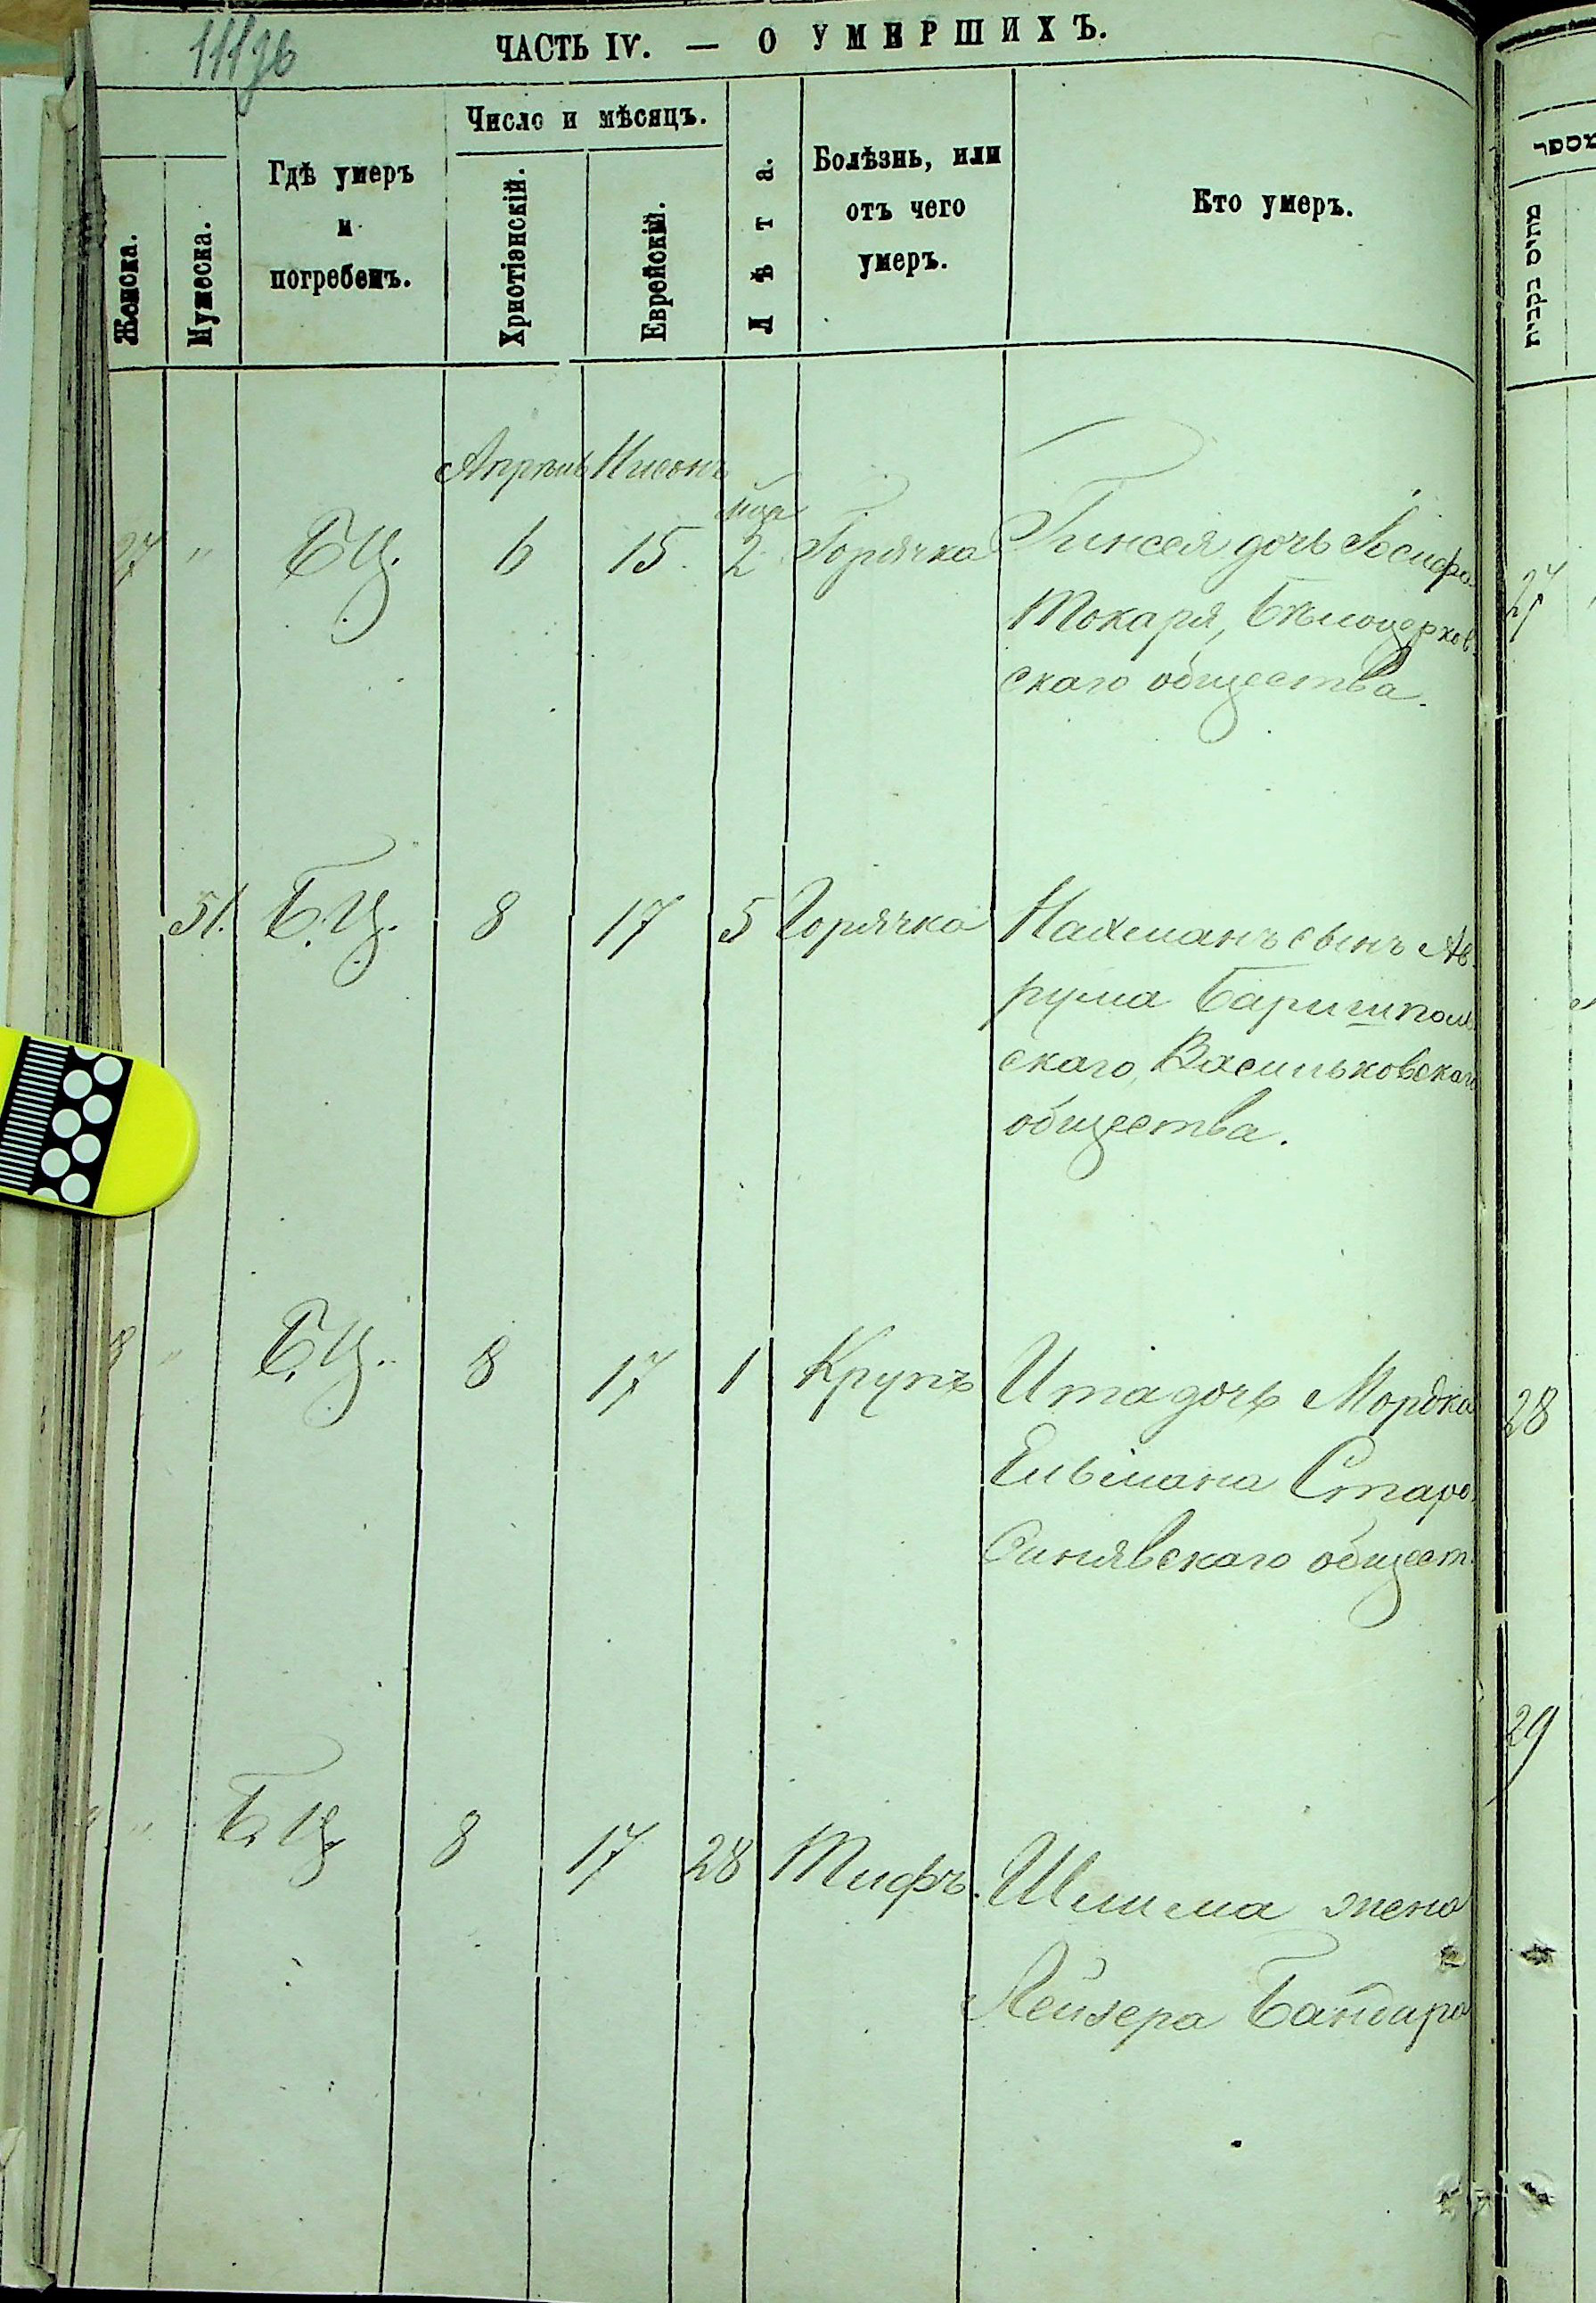 111 зв
ЧАСТЬ IV. — О УМЕРШИХЪ.
Женска.
Мужеска.
Гдѣ умеръ
и
погребенъ.
Число и мѣсяцъ.
Христіанскій.
Еврейскій.
Лѣта.
Болѣзнь, или
отъ чего
умеръ.
Кто умеръ.
Апрѣль Нисонъ
27 " БЦ. 6 15. 2 Горячка дочь Іосифа
Токаря, Бѣлоцерков
скаго общества.
51. Б.Ц. 8 17 5 Горячка Нахманъ сынъ Ав
рума Баришполь
скаго, Васильковскаго
общества.
8 " Б.Ц. 8 17 1 Крупъ Ита дочь Мордка
Ельмана Старо
Синявскаго общест.
" Б.Ц. 8 17 28 Тифъ. Шлима жена
Лейзера Бандара
מספר
מתים נקבות
27
28
29